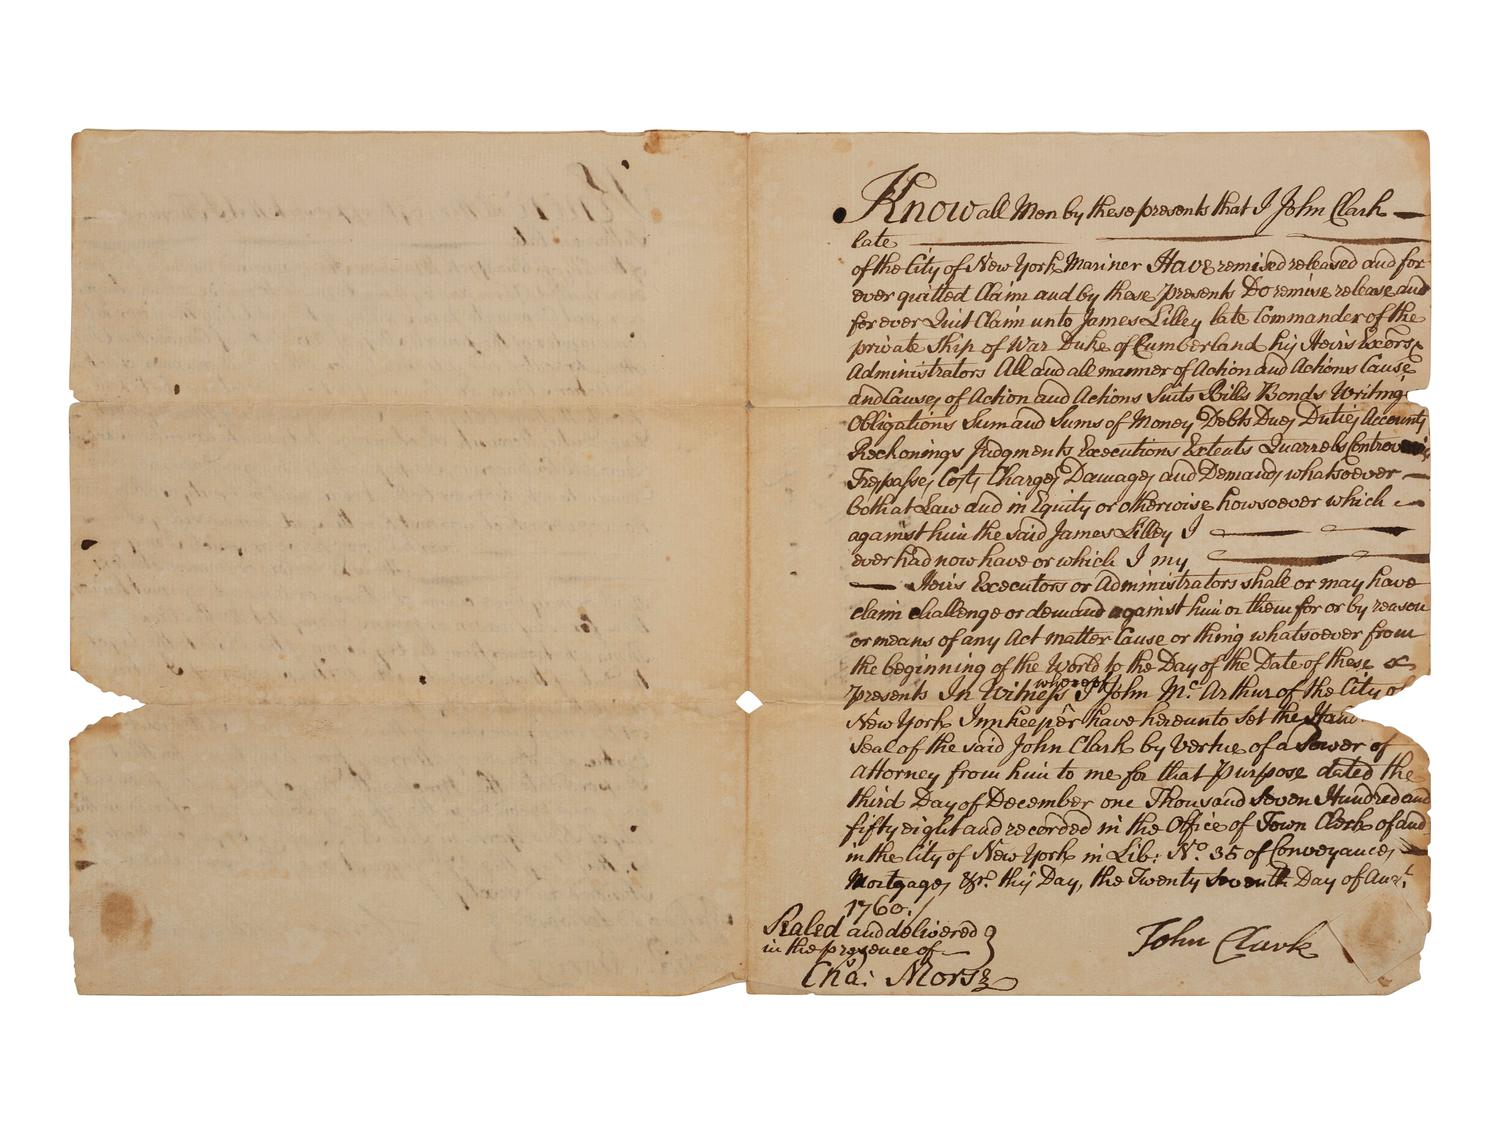 Know all Men by these presents that I John Clark
late
of the City of New York Mariner Have remised released and for
ever quitted Claim and by these Presents Do remise release and
for ever Quit Claim unto James Lilley late Commander of the
private Ship of War Duke of Cumberland his Heirs Excors &
Administrators All and all manner of Action and Actions Cause
and Causes of Action and Actions Suits Bills Bonds Writing
Obligations Sum and Sums of Money Debts Dues Duties Accounts
Reckonings Judgments Executions Extents Quarrels
Trespasses Costs Charges Damages and Demands whatsoever
both at Law and in Equity or otherwise howsoever which
against him the said James Lilley I
ever had now have or which I my
Heirs Executors or Administrators shall or may have
claim challenge or demand against him or them for or by reason
or means of any Act matter Cause or thing whatsoever from
the beginning of the World to the Day of the Date of these
presents In Witness whereof I John Mc Arthur of the City of
New York Innkeeper have hereunto set the
Seal of the said John Clark by Vertue of a Power of
Attorney from him to me for that Purpose dated the
third Day of December one Thousand Seven Hundred and
fifty eight and recorded in the Office of Town Clerk of and
in the City of New York in Lib: No. 35 of Conveyances
Mortgages &c. this Day, the Twenty Seventh Day of Augt.
1760./
Sealed and delivered
in the presence of
John Clark
Chas: Morse